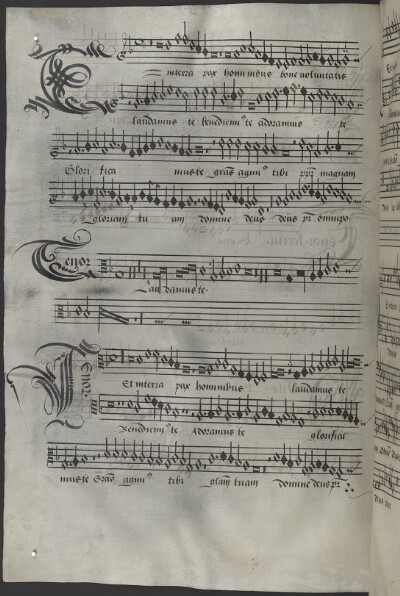 Et in terra pax hominibus bone voluntatis
laudamus te benedicimus te adoramus te
Glori fica mus te gras agimus tibi ppter magnam
gloriam tu am domine deus deus pr omnipo
Tenor
Lau damus te
Tenor
Et in terra pax hominibus laudamus te
Benedicimus te Adoramus te glorifica
mus te Gras agimus tibi glam tuam Domine deus pr